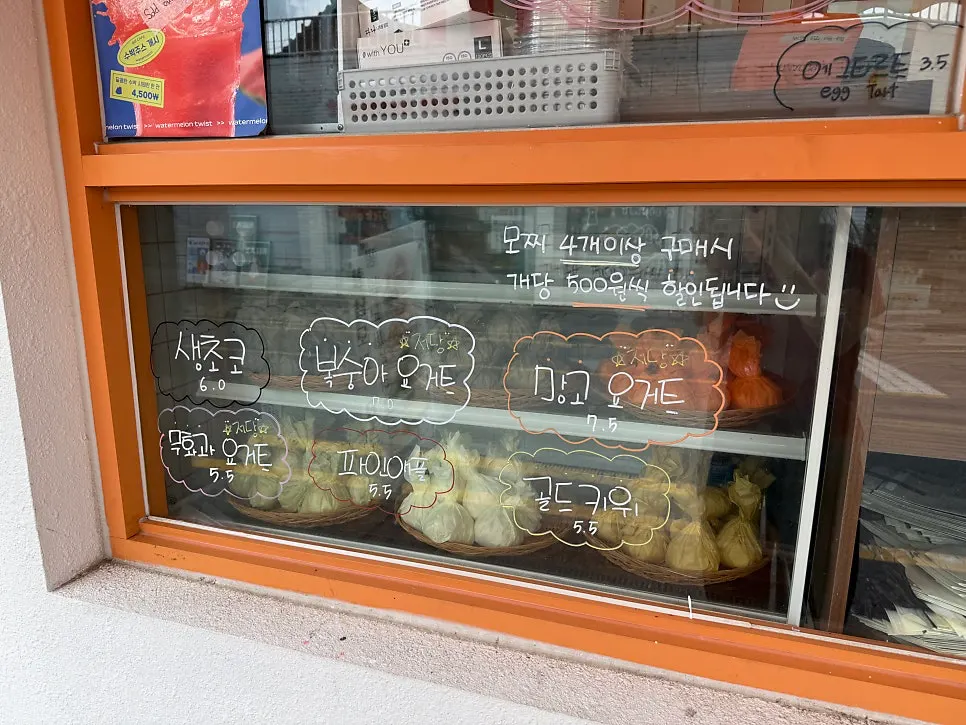 수박주스 개시
4,500원
melon twist >> watermelon twist >> watermelon
with YOU+
L
에그타르트 3.5
egg Tart
모찌 4개이상 구매시
개당 500원씩 할인됩니다
생초코
6.0
저당
복숭아 요거트
7.0
저당
망고 요거트
7.5
저당
무화과 요거트
5.5
파인애플
5.5
골드키위
5.5